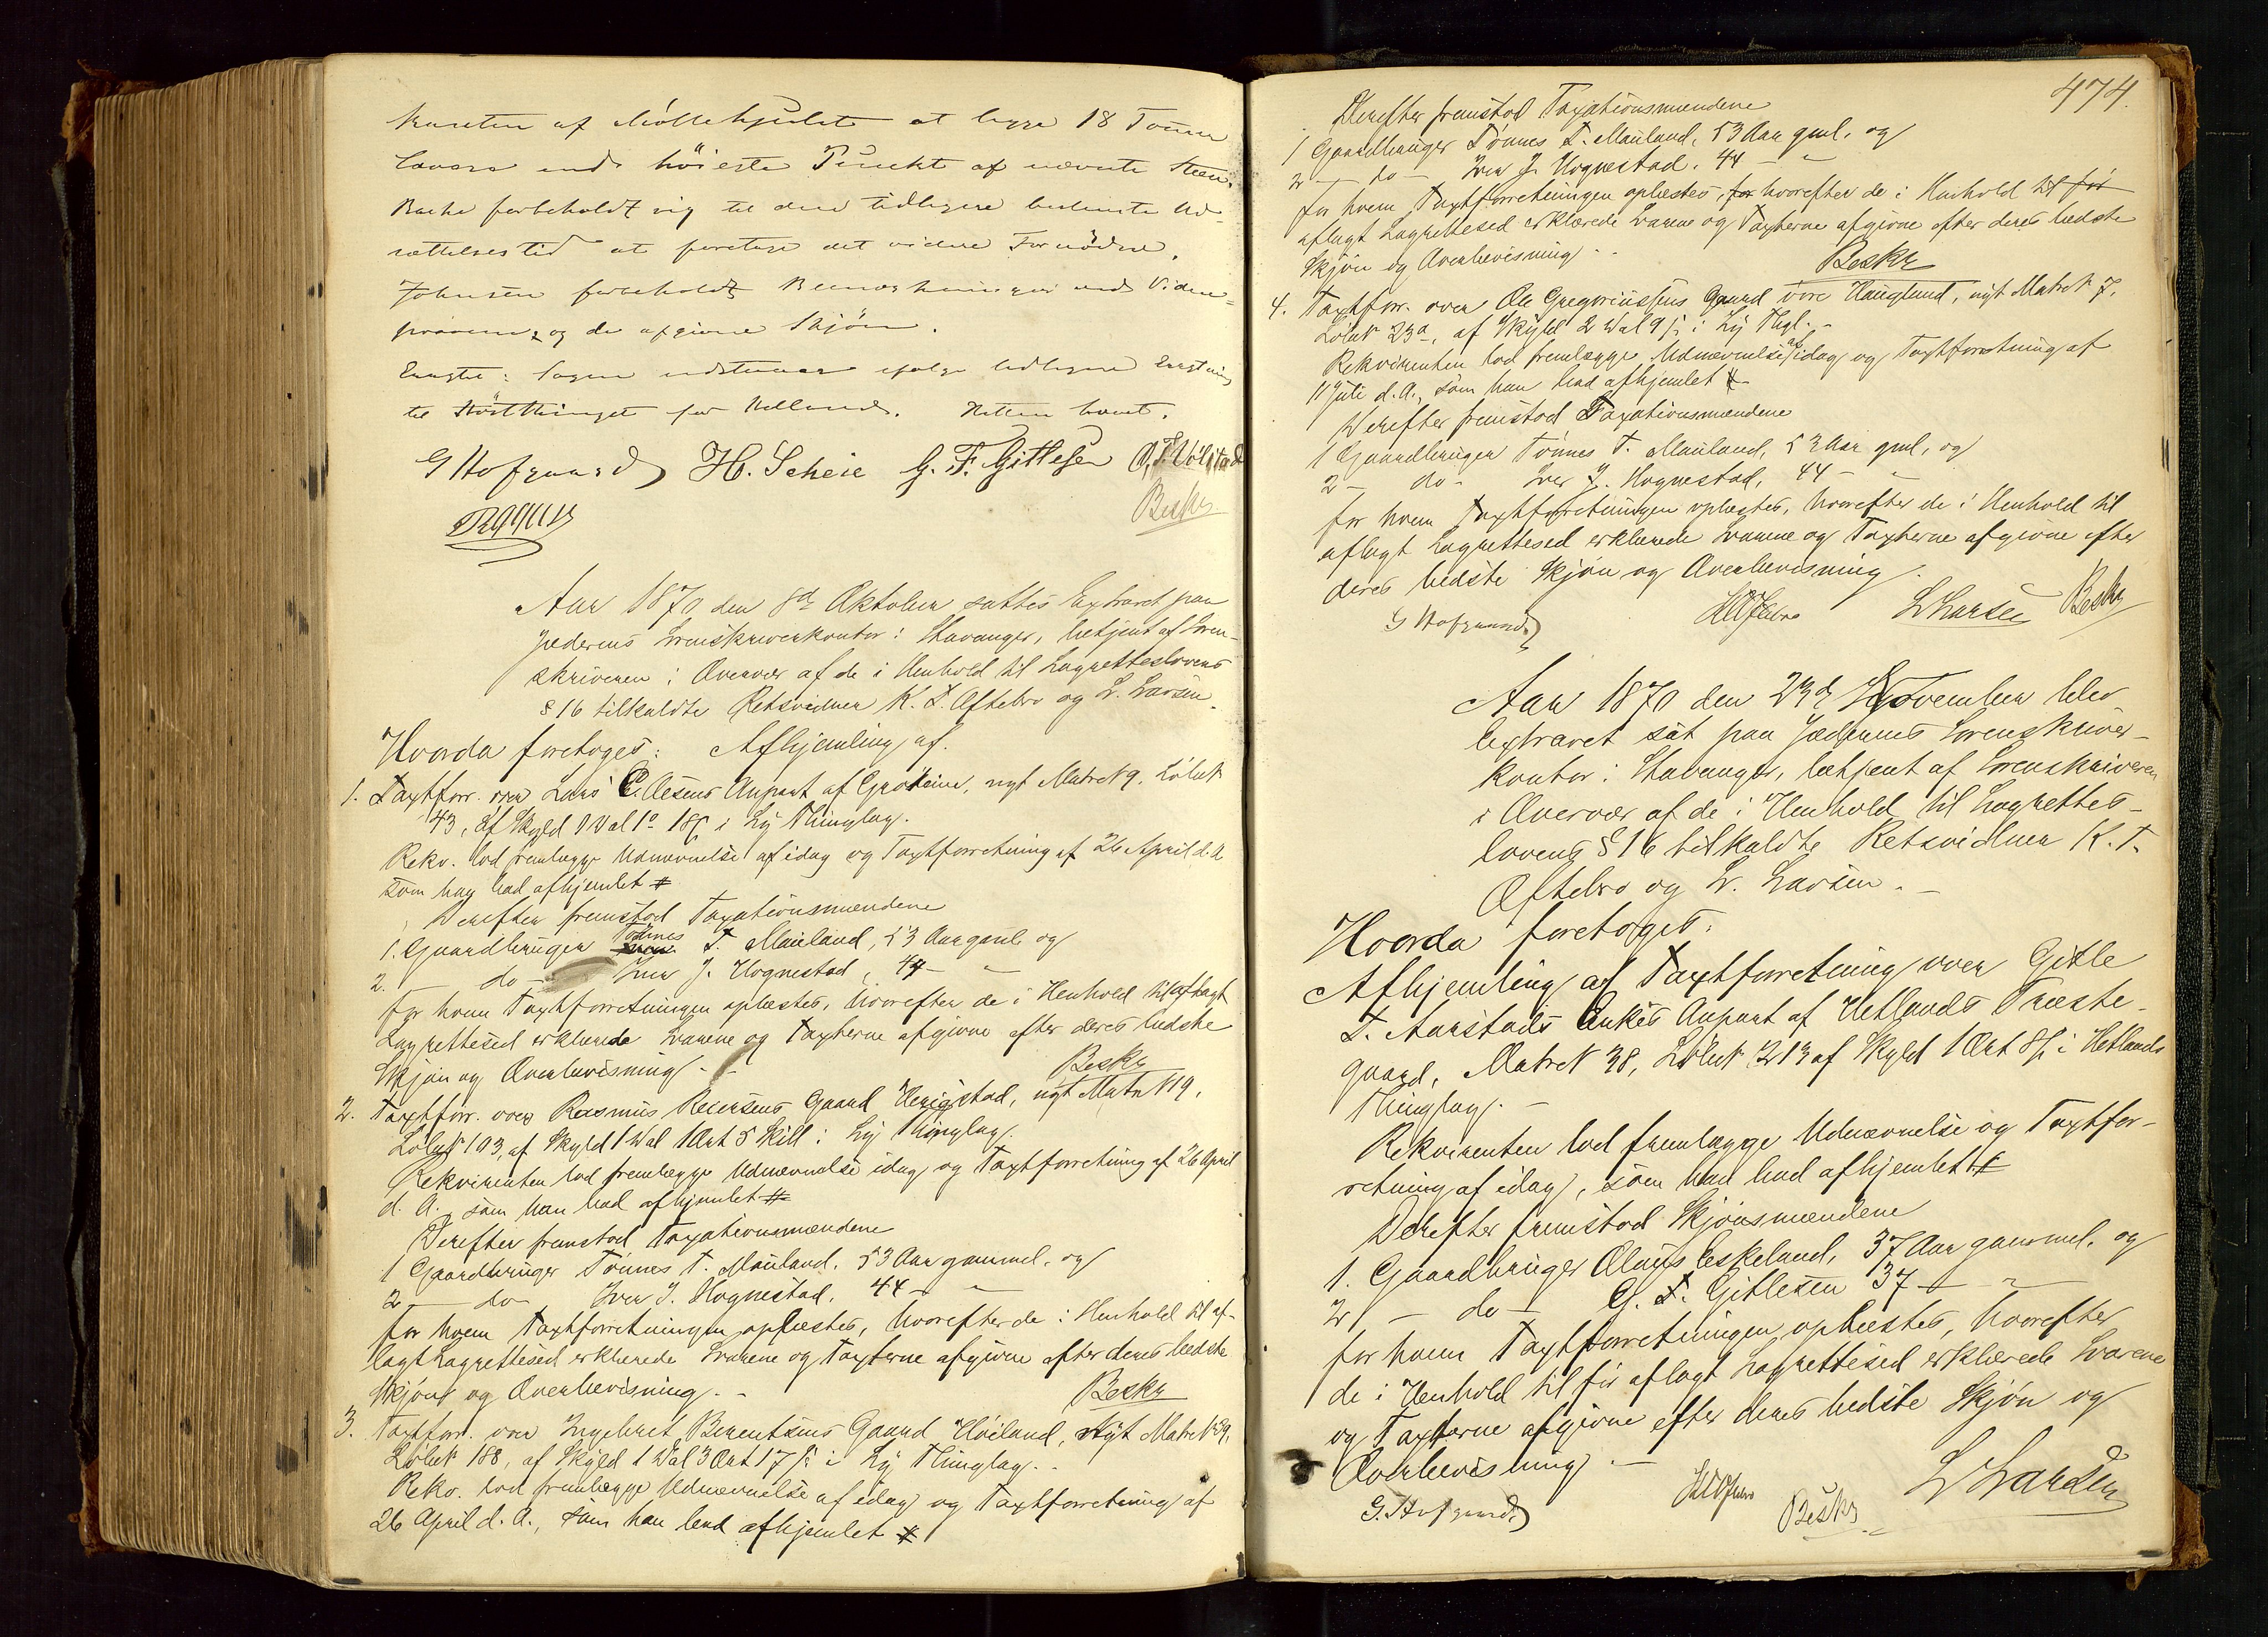 af Möllehjulet at ligge 18 Tommer
lavere end höieste Punkt af nævnte Steen.
Bache forbeholdt sig til den tidligere bestemte Ud-
sættelsestid at foretage det videre Fornödne.
Johnsen forbeholdt Bemærkninger ved Vidne-
og de afgivne Skjön.
Eragtet: Sagen udstaaer ifølge tidligere
til for Hetland. Retten hævet.
G Hofgaard H. Scheie G. F. Gitlesen
Beskr
Aar 1870 den 8de Oktober sattes Extraret paa
Jæderens Sorenskriverkontor i Stavanger, betjent af Soren-
skriveren i Overvær af de i Henhold til Lagretteslovens
§ 16 tilkaldte Retsvidner K. T. Oftebro og L. Larsen.
Hvorda foretoges: Afhjemling af.
1. Taxtforr. over Lars Anpart af nyt Matr № 9. Löbn
43, af Skyld 1 Dal 1o 18 ß i Ly Thinglag.
Rekv. lod fremlægge Udnævnelse af idag og Taxtforretning af 26 April d. A
som han lod afhjemlet #
Derefter fremstod Taxationsmændene
1. Gaardbruger Tönnes T. Mauland, 53 Aar gaml. og
2. — do — Iver J. Hognestad, 44 — "
for hvem Taxtforretningen oplæstes, hvorefter de i Henhold til aflagt
Lagrettesed erklærede Svarene og Taxterne afgivne efter deres bedste
Skjön og Overbevisning. —
Beskr
2. Taxtforr. over Rasmus Reiersens Gaard Herigstad, nyt Matr № 19.
Löbn 103, af Skyld 1 Dal 1 Ort 5 Skill i Ly Thinglag.
Rekvirenten lod fremlægge Udnævnelse idag og Taxtforretning af 26 April
d. A. som han lod afhjemlet #
Derefter fremstod Taxationsmændene
1 Gaardbruger Tönnes T. Mauland. 53 Aar gammel. og
2 — do — Iver J. Hognestad. 44 — "
for hvem Taxtforretningen oplæstes, hvorefter de i Henhold til af-
lagt Lagrettesed erklærede Svarene og Taxterne afgivne efter deres bedste
Skjön og Overbevisning. —
Beskr
3. Taxtforr. over Ingebret Berentsens Gaard Höiland, nyt Matr № 39.
Löbn 188, af Skyld 1 Dal 3 Ort 17 ß i Ly Thinglag. —
Rekv. lod fremlægge Udnævnelse af idag og Taxtforretning af
26 April d. A., som han lod afhjemlet #
474.
Derefter fremstod Taxationsmændene
1 Gaardbruger Tönnes T. Mauland, 53 Aar gml. og
2 — do — Iver J. Hognestad. 44 — "
for hvem Taxtforretningen oplæstes, for hvorefter de i Henhold til för
aflagt Lagrettesed erklærede Svarene og Taxterne afgivne efter deres bedste
Skjön og Overbevisning. —
Beskr
4. Taxtforr. over Ole Gregoriussens Gaard Hauglund, nyt Matr № 7.
Löbn 23a, af Skyld 2 Dal 9 ß i Ly Thgl. —
Rekvirenten lod fremlægge Udnævnelse af idag og Taxtforretning af
11 Juli d. A., som han lod afhjemlet #
Derefter fremstod Taxationsmændene
1 Gaardbruger Tönnes T. Mauland, 53 Aar gml, og
2 — do — Iver J. Hognestad, 44 — "
for hvem Taxtforretningen oplæstes, hvorefter de i Henhold til
aflagt Lagrettesed erklærede Svarene og Taxterne afgivne efter
deres bedste Skjön og Overbevisning.
G Hofgaard KTOftebro L Larsen Beskr
Aar 1870 den 23de November blev
Extraret sat paa Jæderens Sorenskriver-
kontor i Stavanger, betjent af Sorenskriveren
i Overvær af de i Henhold til Lagrettes-
lovens § 16 tilkaldte Retsvidner K. T.
Oftebro og L. Larsen. —
Hvorda foretoges:
Afhjemling af Taxtforretning over Gitle
T. Aarstads Enkes Anpart af Hetlands Præste-
gaard, Matr № 38, Löbn 213 af Skyld 1 Ort 8 ß i Hetlands
Thinglag. —
Rekvirenten lod fremlægge Udnævnelse og Taxtfor-
retning af idag, som han lod afhjemlet #
Derefter fremstod Skjönsmændene
1. Gaardbruger Olaus Eskeland, 37 Aar gammel. og
2 — do — G. F. Gitlesen 37 — "
for hvem Taxtforretningen oplæstes, hvorefter
de i Henhold til för aflagt Lagrettesed erklærede Svarene
og Taxterne afgivne efter deres bedste Skjön og
Overbevisning. —
G. Hofgaard KTOftebro Beskr L Larsen